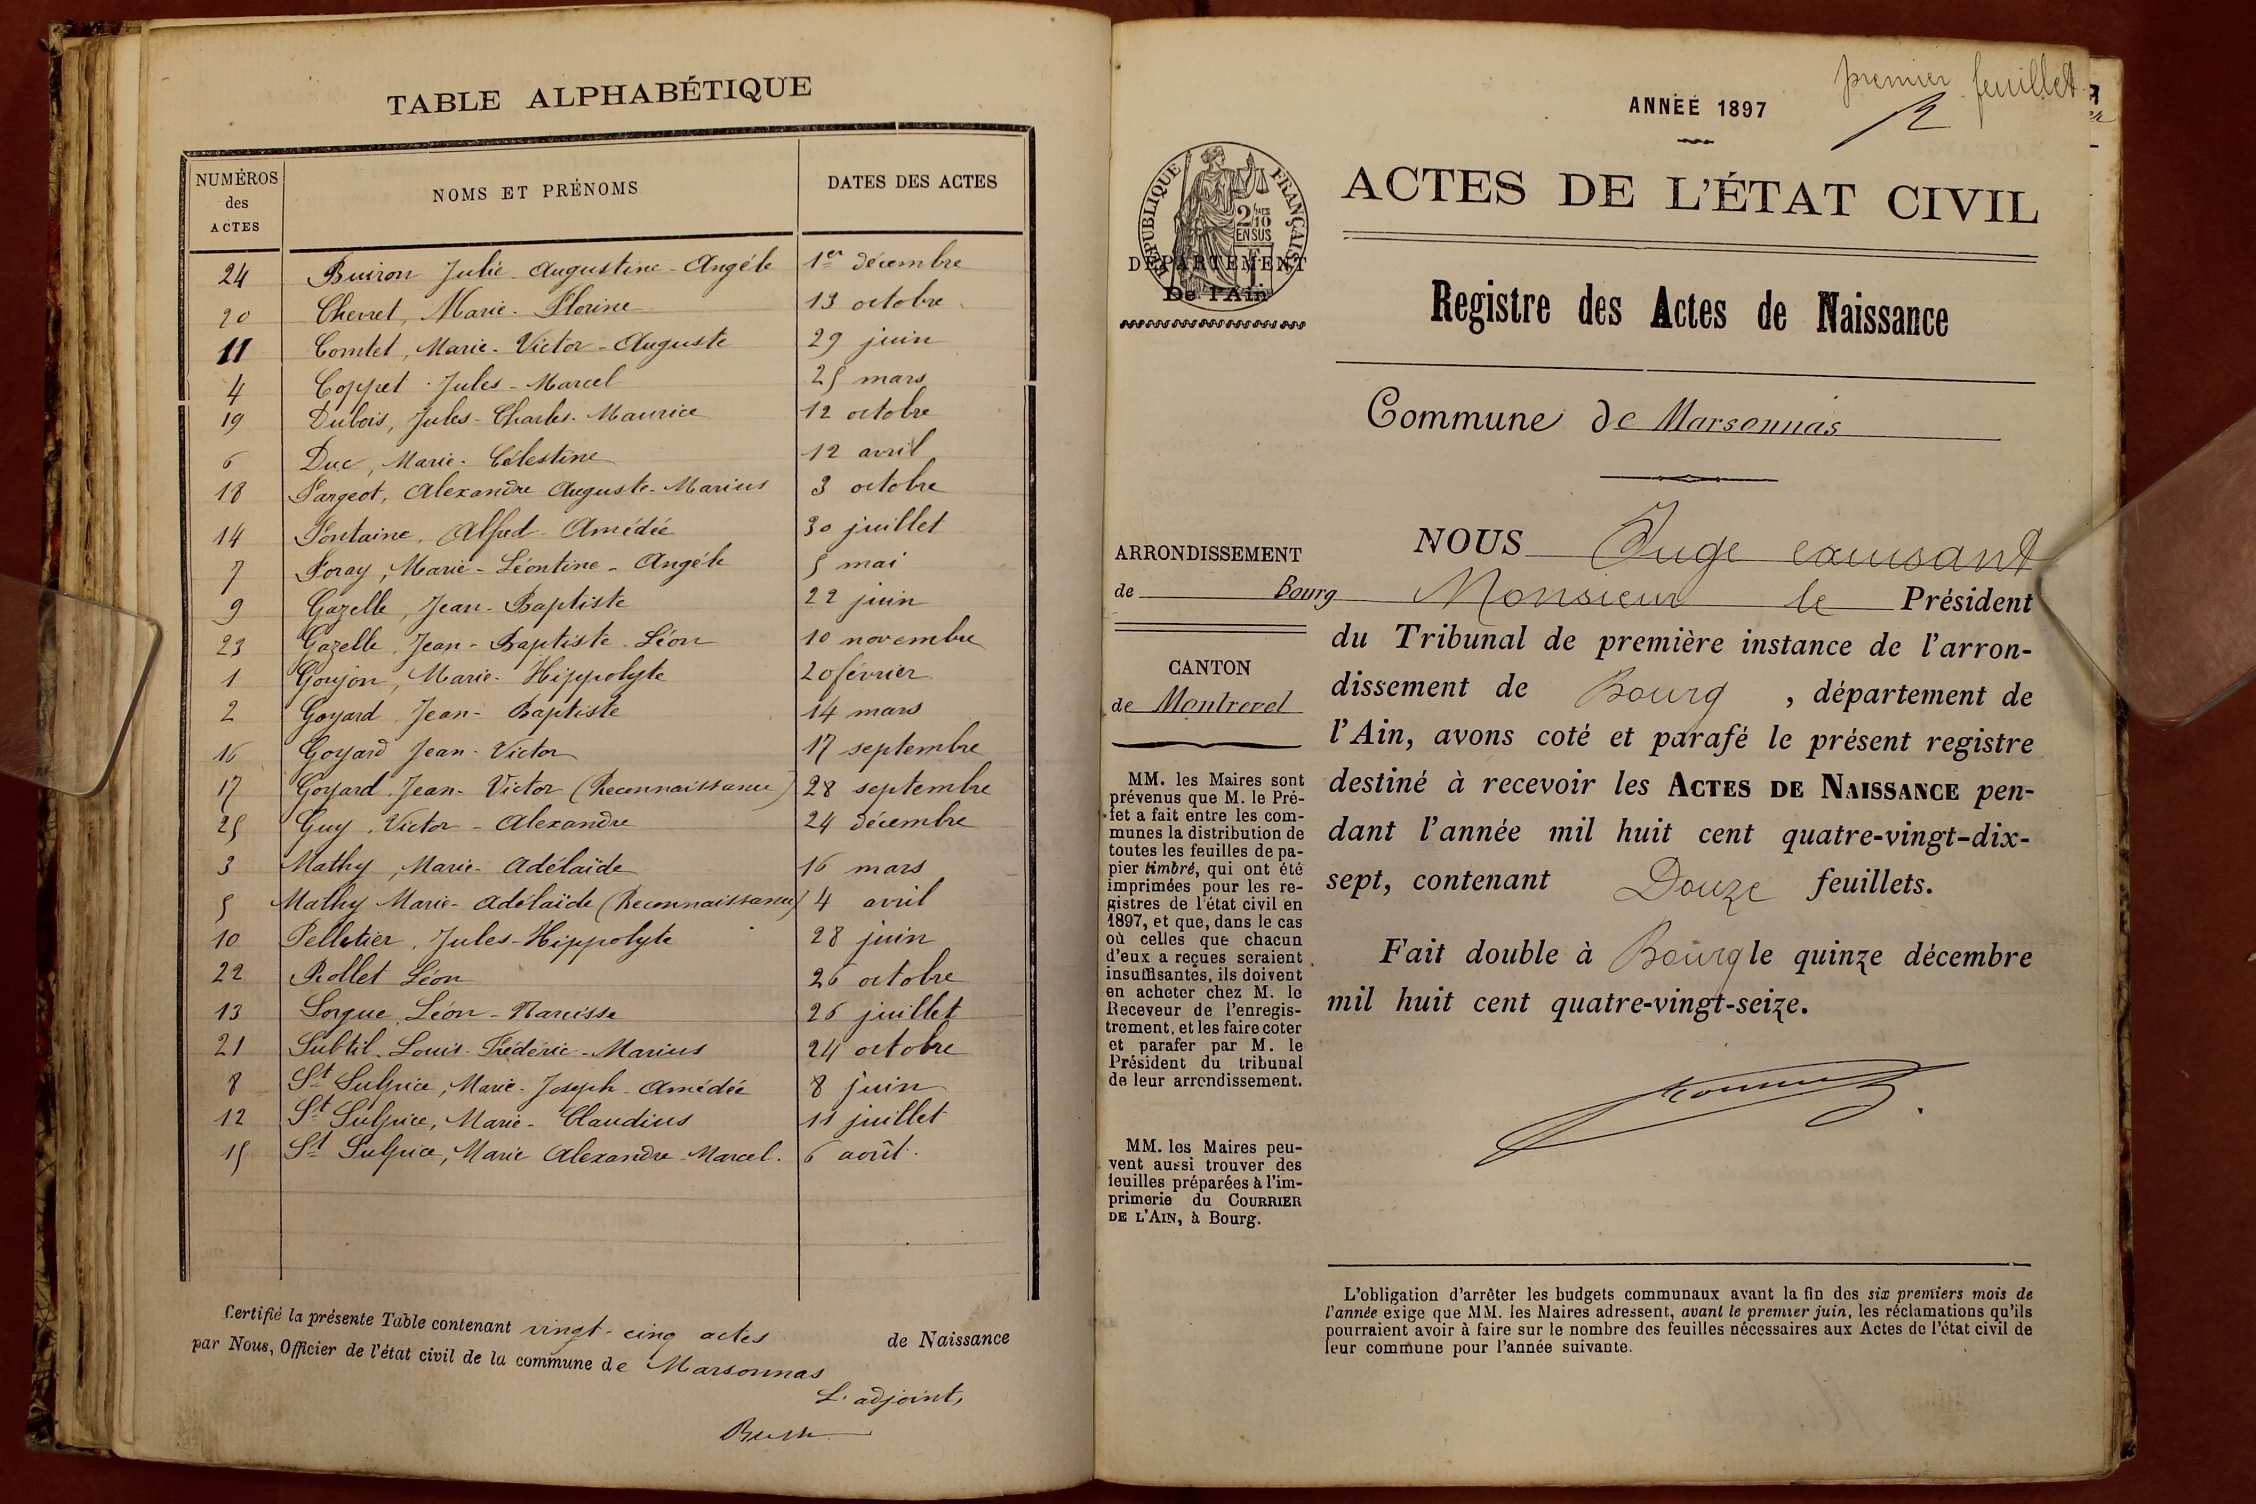 TABLE ALPHABÉTIQUE
NUMÉROS des ACTES NOMS ET PRÉNOMS DATES DES ACTES
24 Buiron Julie Augustine-Angéle 1er décembre
20 Chevret, Marie-Florine 13 octobre
11 Comtet, Marie-Victor-Auguste 29 juin
4 Coppet Jules-Marcel 25 mars
19 Dubois, Jules-Charles-Maurice 12 octobre
6 Duc, Marie-Célestine 12 avril
18 Fargeot, Alexandre Auguste-Marius 3 octobre
14 Fontaine, Alfred-Amédée 30 juillet
7 Foray, Marie-Léontine-Angéle 5 mai
9 Gazelle, Jean-Baptiste 22 juin
23 Gazelle, Jean-Baptiste-Léon 10 novembre
1 Goujon, Marie-Hippolyte 20 février
2 Goyard Jean-Baptiste 14 mars
16 Goyard Jean-Victor 17 septembre
17 Goyard Jean-Victor (Reconnaissance) 28 septembre
25 Guy, Victor-Alexandre 24 décembre
3 Mathy, Marie-Adélaïde 16 mars
5 Mathy Marie-Adélaïde (Reconnaissance) 4 avril
10 Pelletier, Jules-Hippolyte 28 juin
22 Rollet Léon 26 octobre
13 Sorgue, Léon-Narcisse 26 juillet
21 Subtil Louis-Frédéric-Marius 24 octobre
8 St Sulpice, Marie-Joseph-Amédée 8 juin
12 St Sulpice, Marie-Claudius 11 juillet
15 St Sulpice, Marie Alexandre-Marcel. 6 août.
Certifié la présente Table contenant vingt-cinq actes de Naissance
par Nous, Officier de l'état civil de la commune de Marsonnas
L'adjoint,
premier feuillet
ANNÉE 1897
RÉPUBLIQUE FRANÇAISE
2/10 EN SUS
DÉPARTEMENT
De l'Ain
ACTES DE L'ÉTAT CIVIL
Registre des Actes de Naissance
Commune de Marsonnas
ARRONDISSEMENT
de Bourg
CANTON
de Montrevel
MM. les Maires sont
prévenus que M. le Pré-
fet a fait entre les com-
munes la distribution de
toutes les feuilles de pa-
pier timbré, qui ont été
imprimées pour les re-
gistres de l'état civil en
1897, et que, dans le cas
où celles que chacun
d'eux a reçues seraient
insuffisantes, ils doivent
en acheter chez M. le
Receveur de l'enregis-
trement, et les faire coter
et parafer par M. le
Président du tribunal
de leur arrondissement.
MM. les Maires peu-
vent aussi trouver des
feuilles préparées à l'im-
primerie du COURRIER
DE L'AIN, à Bourg.
NOUS Juge excusant
Monsieur le Président
du Tribunal de première instance de l'arron-
dissement de Bourg, département de
l'Ain, avons coté et parafé le présent registre
destiné à recevoir les ACTES DE NAISSANCE pen-
dant l'année mil huit cent quatre-vingt-dix-
sept, contenant Douze feuillets.
Fait double à Bourg le quinze décembre
mil huit cent quatre-vingt-seize.
L'obligation d'arrêter les budgets communaux avant la fin des six premiers mois de
l'année exige que MM. les Maires adressent, avant le premier juin, les réclamations qu'ils
pourraient avoir à faire sur le nombre des feuilles nécessaires aux Actes de l'état civil de
leur commune pour l'année suivante.